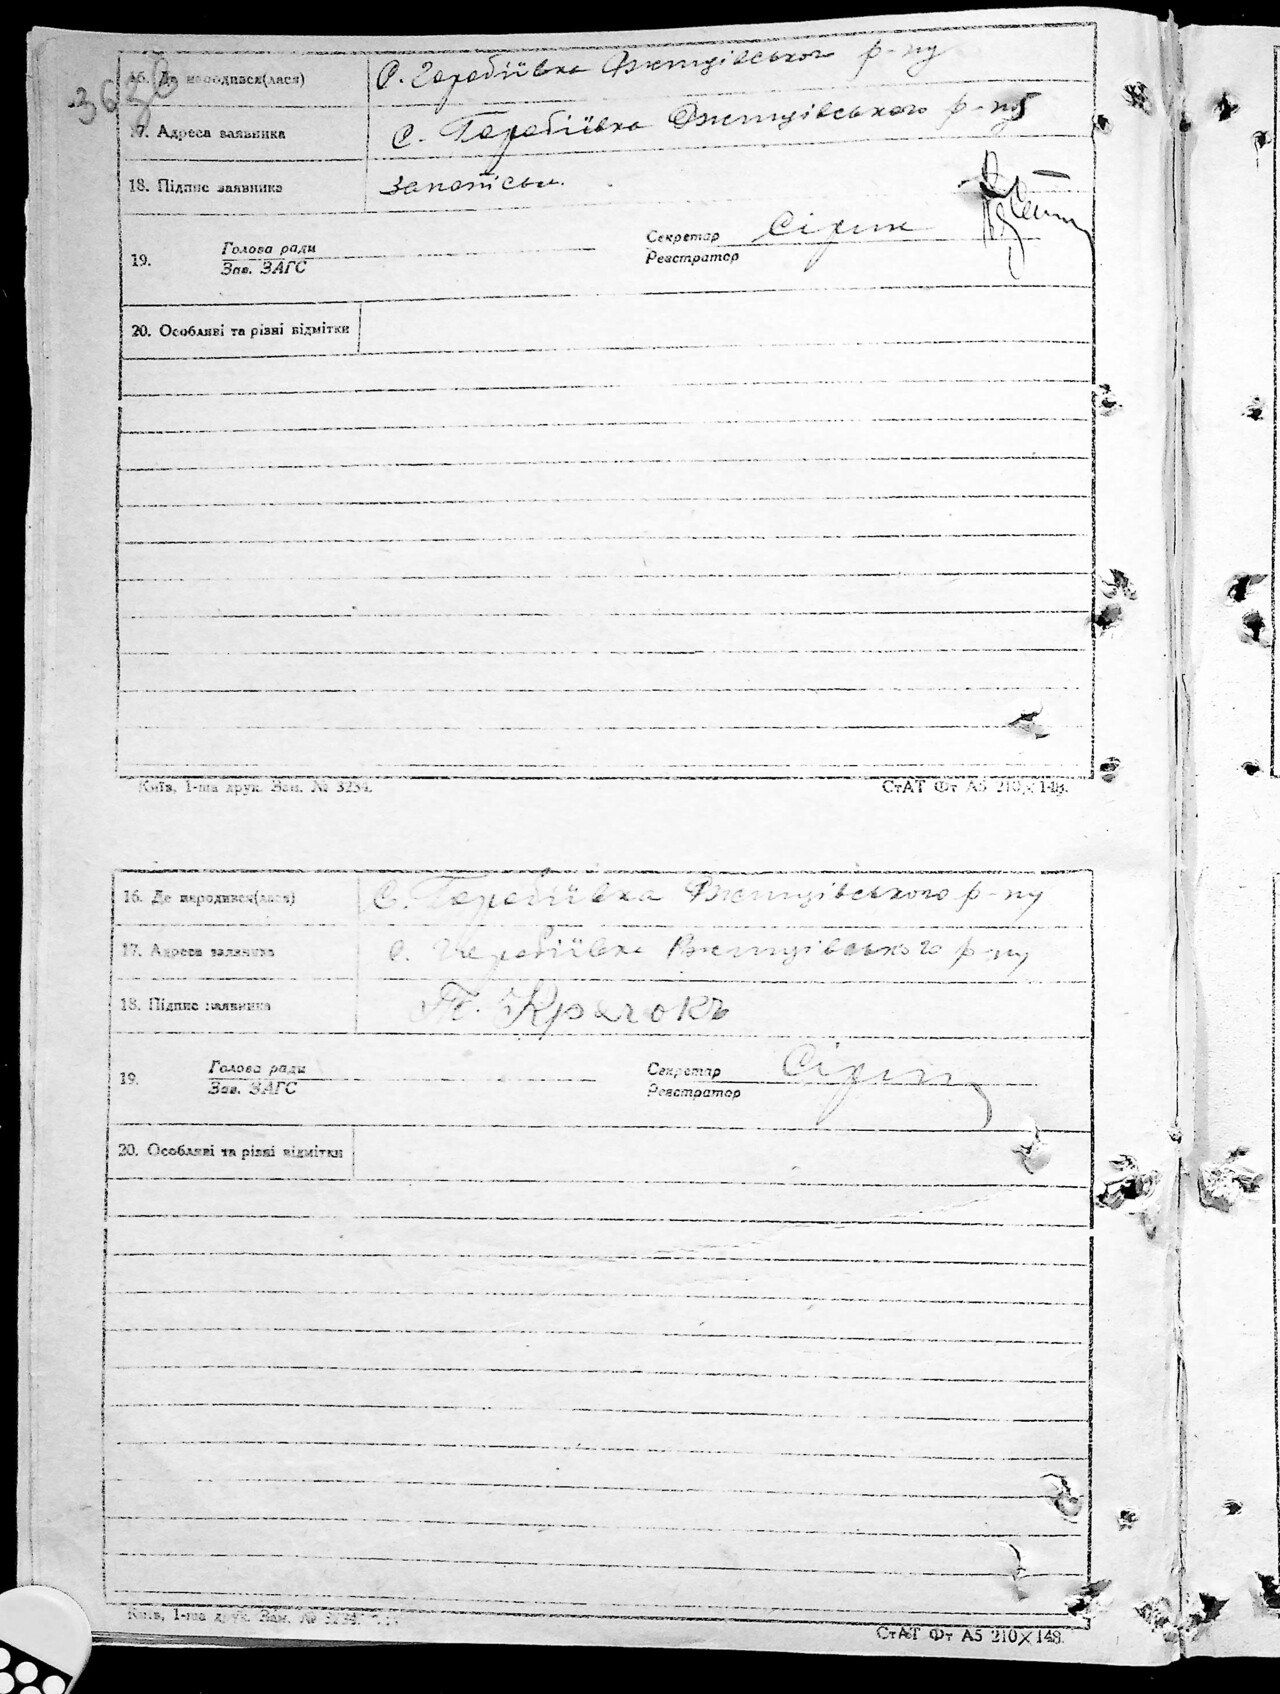 363зв
16. Де народився(лася) с. Теребіївка Ржищівського р-ну
17. Адреса заявника с. Теребіївка Ржищівського р-ну
18. Підпис заявника
19. Голова ради Секретар
Зав. ЗАГС Реєстратор
20. Особливі та різні відмітки
Київ, 1-ша друк. Зам. № 3234. СтАТ Фт А5 210×148.
16. Де народився(лася) с. Теребіївка Ржищівського р-ну
17. Адреса заявника с. Теребіївка Ржищівського р-ну
18. Підпис заявника
19. Голова ради Секретар
Зав. ЗАГС Реєстратор
20. Особливі та різні відмітки
Київ, 1-ша друк. Зам. № 3234. СтАТ Фт А5 210×148.